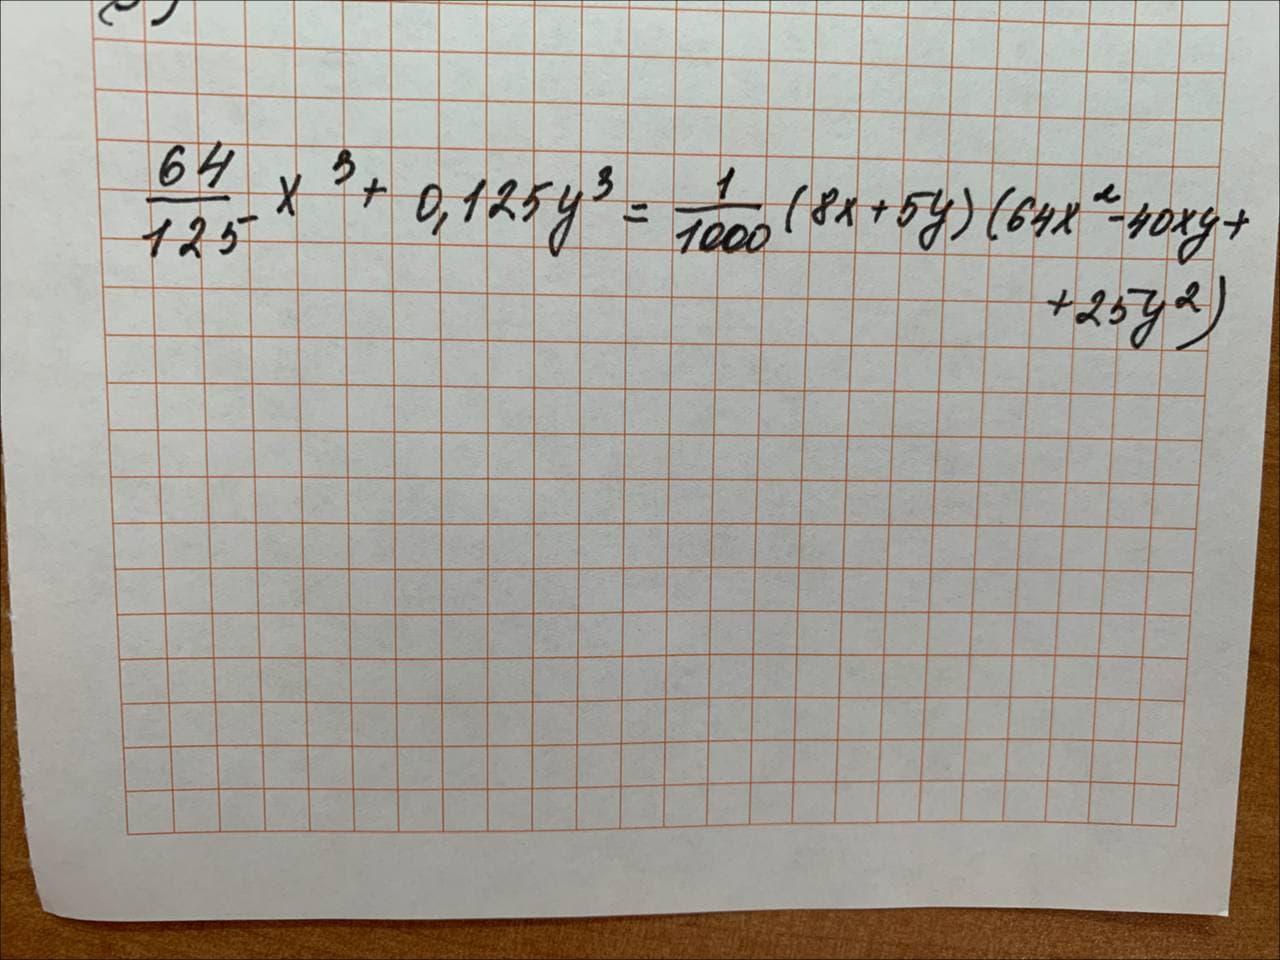 64/125 x³ + 0,125y³ = 1/1000 (8x + 5y) (64x² - 40xy +
+ 25y²)